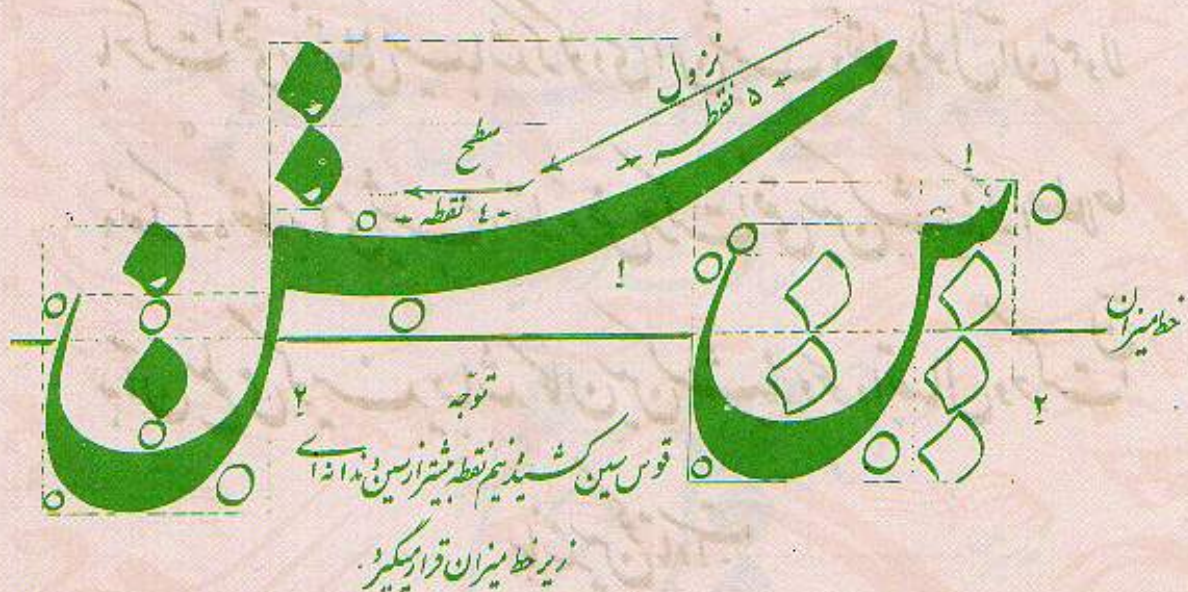 نزول
۵ نقطه
سطح
٤ نقطه
س س
۱
۱
خط میزان
۲
۲
توجه
قوس سین کشیده نیم نقطه بیشتر از سین دندانه‌ای
زیر خط میزان قرار میگیرد.